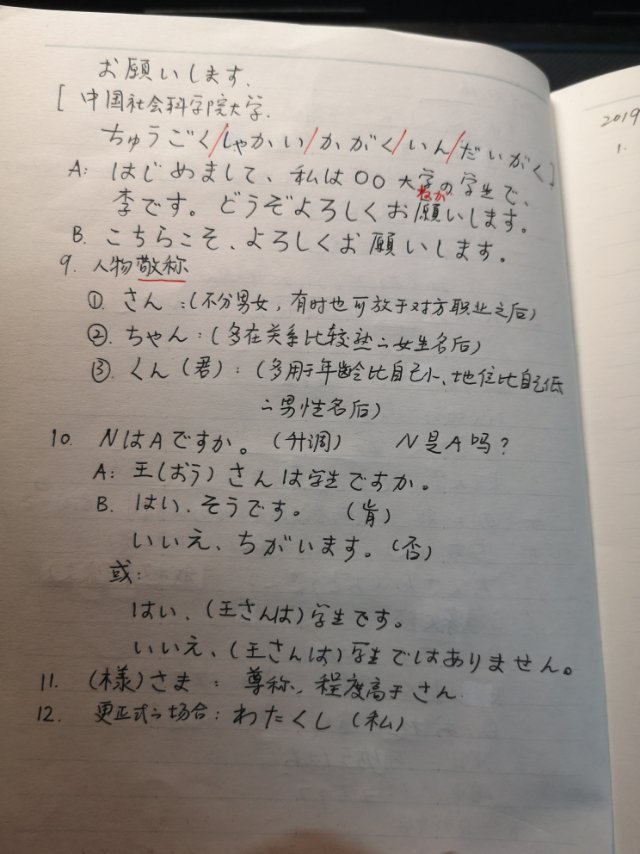 お願いします.
[中国社会科学院大学.
ちゅうごく/しゃかい/かがく/いん/だいがく]
A: はじめまして、私は〇〇大学の学生で、
ねが
李です。どうぞよろしくお願いします。
B. こちらこそ、よろしくお願いします。
9. 人物敬称
①. さん:(不分男女,有时也可放于对方职业之后)
②. ちゃん:(多在关系比较熟二女生名后)
③. くん(君):(多用于年龄比自己小、地位比自己低
二男性名后)
10. NはAですか。(升调) N是A吗?
A: 王(おう)さんは学生ですか。
B. はい、そうです。(肯)
いいえ、ちがいます。(否)
或:
はい、(王さんは)学生です。
いいえ、(王さんは)学生ではありません。
11. (様)さま: 尊称,程度高于さん.
12. 更正式二场合:わたくし(私)
2019
1.